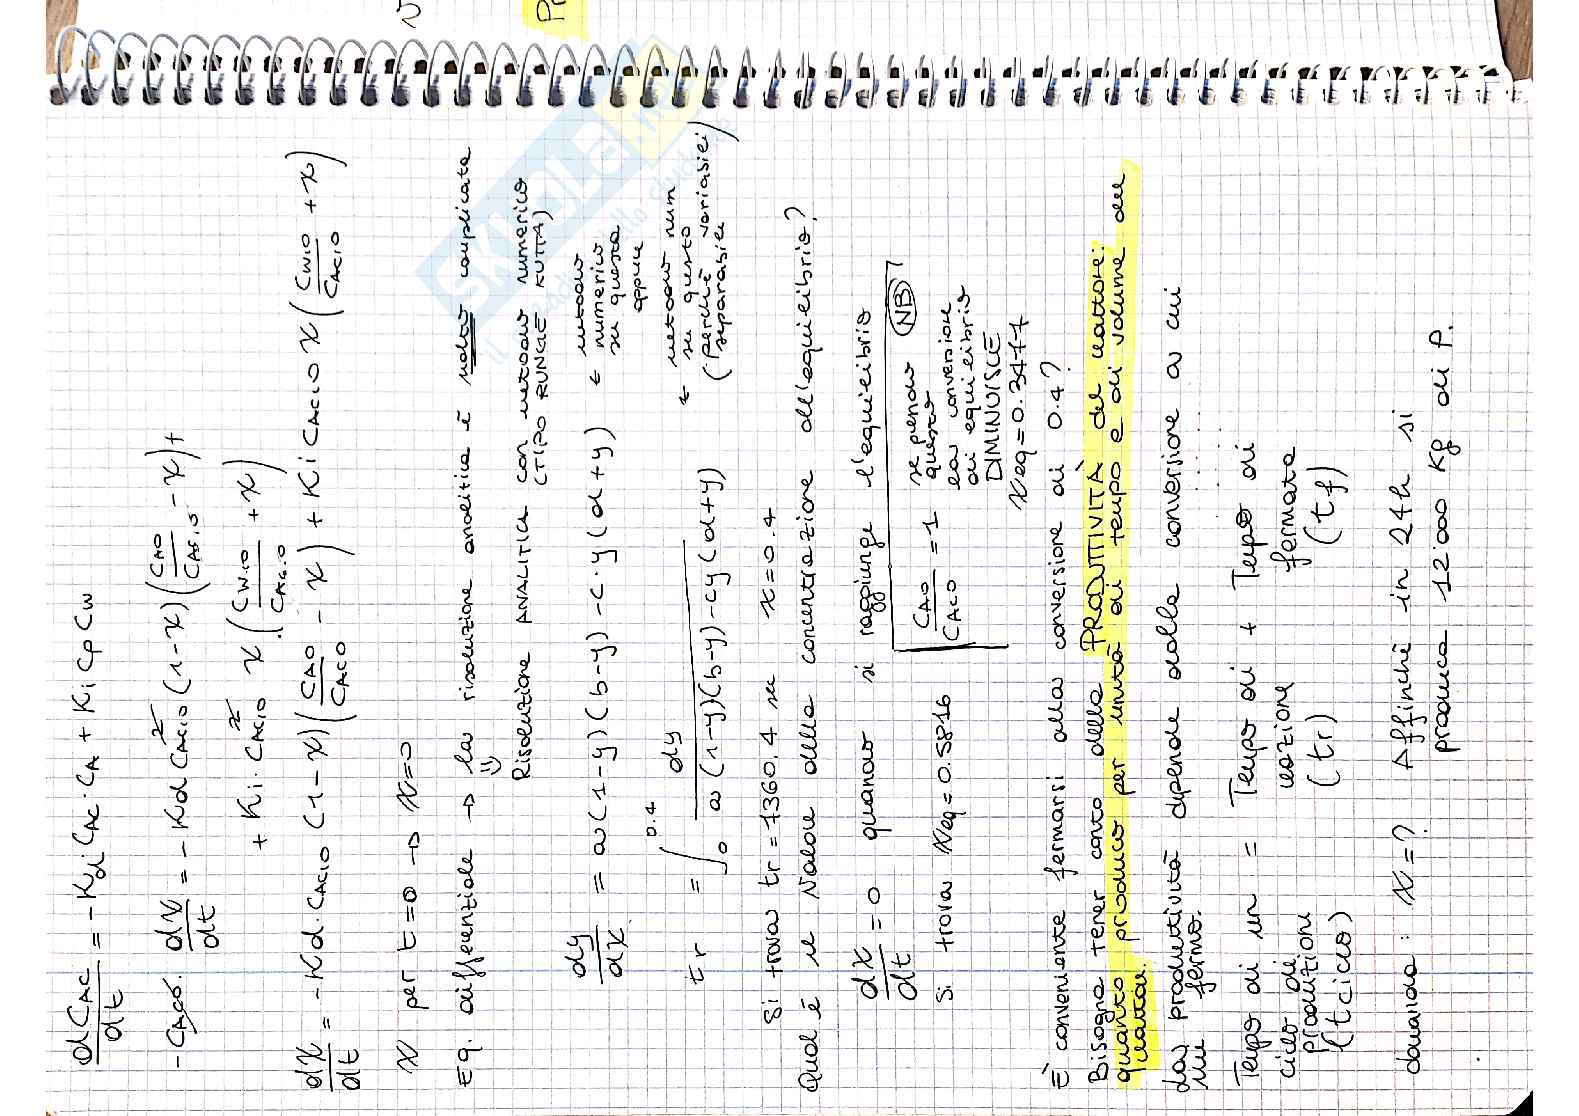 dC_AC/dt = -K_di C_AC · C_A + K_i C_P C_W
-C_AC0 · dx/dt = -K_d C_AC,0² (1-x) (C_A0/C_AC,0 - x) +
+ K_i · C_AC,0² x · (C_W,0/C_AC,0 + x)
dx/dt = -K_d · C_AC,0 (1-x) (C_A0/C_AC0 - x) + K_i C_AC,0 x (C_W,0/C_AC,0 + x)
x per t=0 → x=0
Eq. differenziale → la risoluzione analitica è molto complicata
⇓
Risoluzione ANALITICA con metodo numerico
(TIPO RUNGE KUTTA)
dy/dx = a(1-y)(b-y) - c·y(d+y) ← metodo
numerico
su questa
oppure
tr = ∫_0^0.4 dy / a(1-y)(b-y)-cy(d+y) ← metodo num
su questo
(perchè variabili
separabili)
Si trova tr = 7360,4 se x=0.4
Qual è il valore della concentrazione all'equilibrio?
dx/dt = 0 quando si raggiunge l'equilibrio
Si trova x_eq = 0.5816
C_A0/C_AC0 = 1 se prendo NB
questo
la conversione
di equilibrio
DIMINUISCE
x_eq = 0.3477
È conveniente fermarsi alla conversione di 0.4?
Bisogna tener conto della PRODUTTIVITÀ del reattore:
quanto produco per unità di tempo e di volume del
reattore.
La produttività dipende dalla conversione a cui
mi fermo.
Tempo di un = Tempo di + Tempo di
ciclo di reazione fermata
produzione (tr) (tf)
(tciclo)
domanda: x=? Affinchè in 24h si
produca 12'000 kg di P.
SKUOLA.net